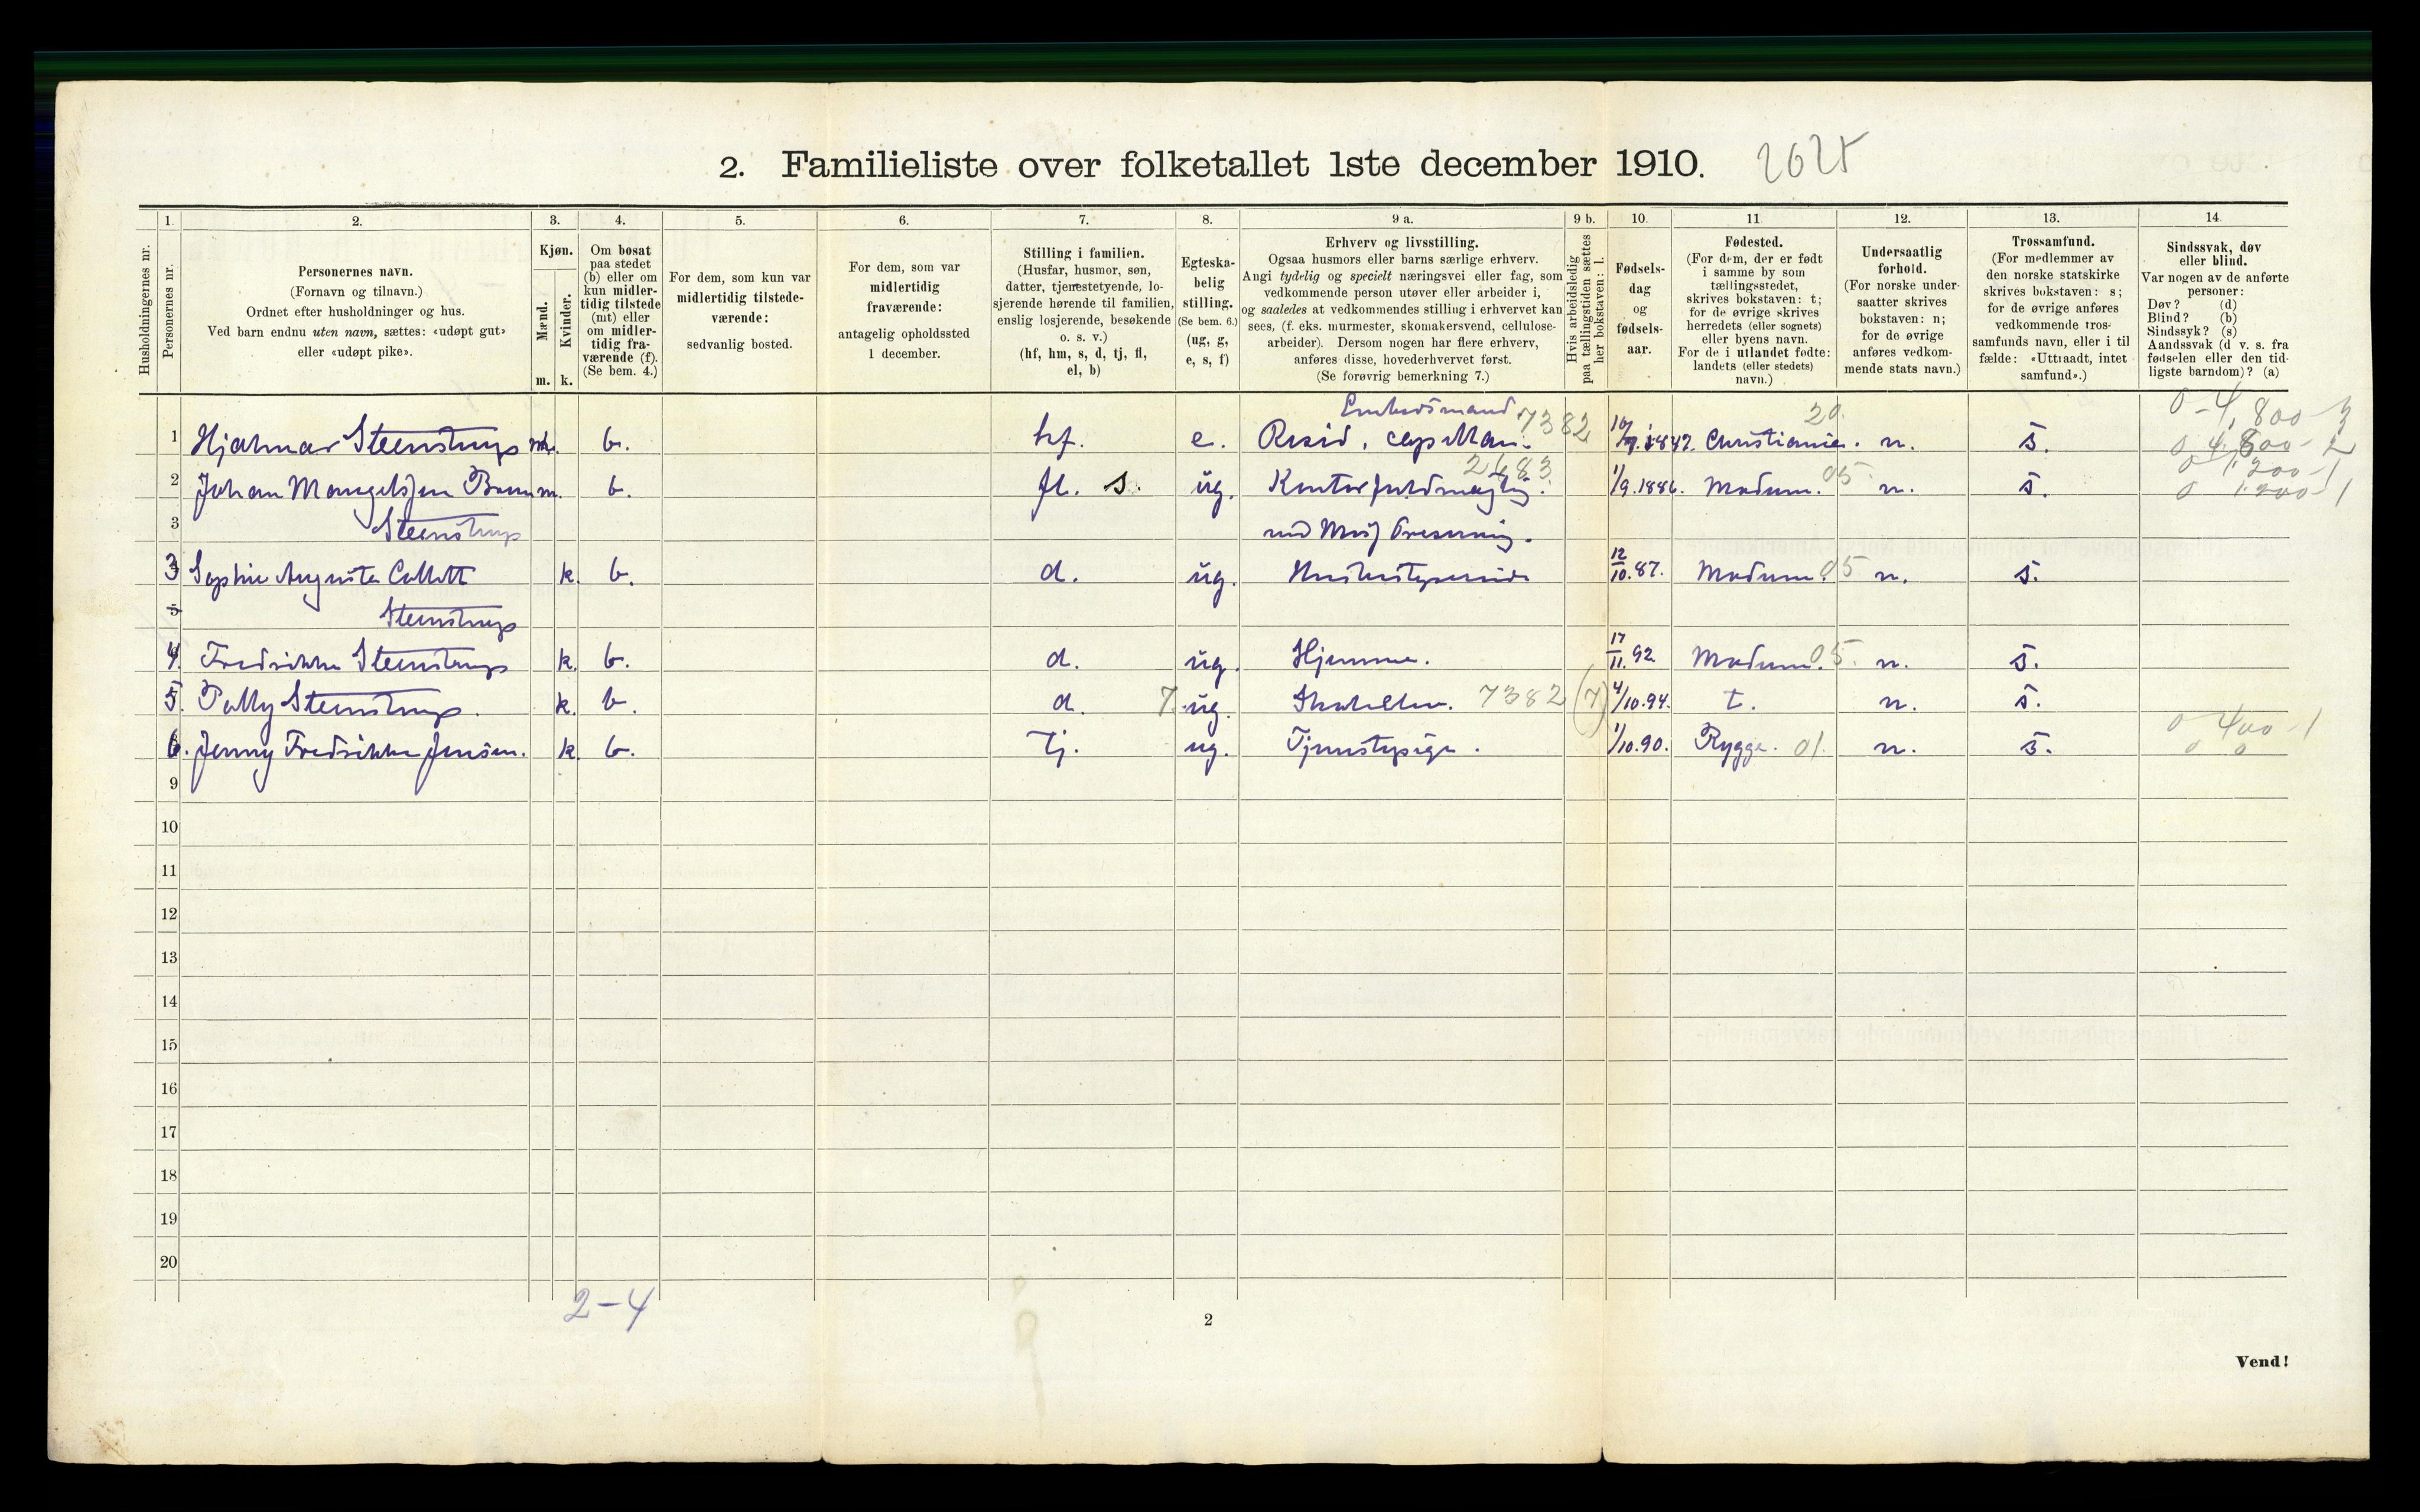 2. Familieliste over folketallet 1ste december 1910. 2625
1. 2. 3. 4. 5. 6. 7. 8. 9 a. 9 b. 10. 11. 12. 13. 14.
Husholdningernes nr.
Personernes nr.
Personernes navn.
(Fornavn og tilnavn.)
Ordnet efter husholdninger og hus.
Ved barn endnu uten navn, sættes: «udøpt gut»
eller «udøpt pike».
Kjøn.
Mænd.
Kvinder.
m. k.
Om bosat
paa stedet
(b) eller om
kun midler-
tidig tilstede
(mt) eller
om midler-
tidig fra-
værende (f).
(Se bem. 4.)
For dem, som kun var
midlertidig tilstede-
værende:
sedvanlig bosted.
For dem, som var
midlertidig
fraværende:
antagelig opholdssted
1 december.
Stilling i familien.
(Husfar, husmor, søn,
datter, tjenestetyende, lo-
sjerende hørende til familien,
enslig losjerende, besøkende
o. s. v.)
(hf, hm, s, d, tj, fl,
el, b)
Egteska-
belig
stilling.
(Se bem. 6.)
(ug, g,
e, s, f)
Erhverv og livsstilling.
Ogsaa husmors eller barns særlige erhverv.
Angi tydelig og specielt næringsvei eller fag, som
vedkommende person utøver eller arbeider i,
og saaledes at vedkommendes stilling i erhvervet kan
sees, (f. eks. murmester, skomakersvend, cellulose-
arbeider). Dersom nogen har flere erhverv,
anføres disse, hovederhvervet først.
(Se forøvrig bemerkning 7.)
Hvis arbeidsledig
paa tællingstiden sættes
her bokstaven: l.
Fødsels-
dag
og
fødsels-
aar.
Fødested.
(For dem, der er født
i samme by som
tællingsstedet,
skrives bokstaven: t;
for de øvrige skrives
herredets (eller sognets)
eller byens navn.
For de i utlandet fødte:
landets (eller stedets)
navn.)
Undersaatlig
forhold.
(For norske under-
saatter skrives
bokstaven: n;
for de øvrige
anføres vedkom-
mende stats navn.)
Trossamfund.
(For medlemmer av
den norske statskirke
skrives bokstaven: s;
for de øvrige anføres
vedkommende tros-
samfunds navn, eller i til
fælde: «Uttraadt, intet
samfund».)
Sindssvak, døv
eller blind.
Var nogen av de anførte
personer:
Døv? (d)
Blind? (b)
Sindssyk? (s)
Aandssvak (d v. s. fra
fødselen eller den tid-
ligste barndom)? (a)
Embedsmand 7382 20. 0-4,800-3
1 Hjalmar Steenstrup m. b. hf. e. Resid. cap. Man. 1842. Christiania. n. s. 0 4,800-2
2683 0 1,200-1
2 Johan Mangelssen Brun m. b. fl. s. ug. Kontorfuldmægtig. 1/9.1886. Modum. 05 n. s. 0 1.200-1
3 Steenstrup
3 Sophie Augusta Collett k b. d. ug. Husbestyrerinde 12/10.87. Modum. 05 n. s.
5 Steenstrup
4. Fredrikke Steenstrup k. b. d. ug. Hjemme. 17/11.92 Modum. 05. n. s.
5. Polly Steenstrup. k. b. d. 7. ug. Skoleelev. 7382 (7) 4/10.94. t. n. s.
0 400-1
6. Jenny Fredrikke Jensen. k. b. Tj. ug. Tjenestepige. 1/10.90. Rygge. 01. n. s. 0 0
9
10
11
12
13
14
15
16
17
18
19
20
2-4
2
Vend!